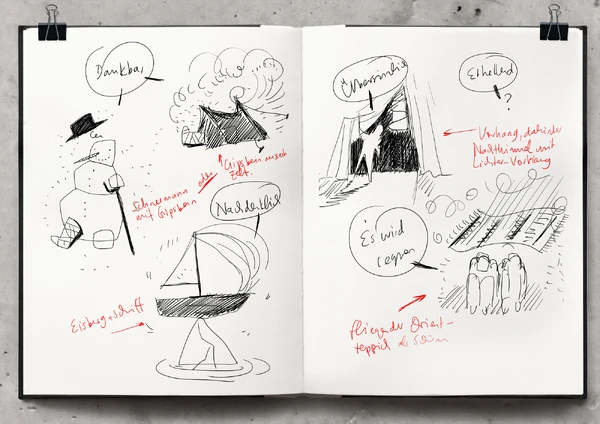 Dankbar
Gipsbein
Zelt.
Schneemann oder
mit Gipsbein
Nachdenklich
Eisberg + Schiff
Übersinnlich
Erhellend
?
Vorhang, dahinter
Nachthimmel mit
Lichter-Vorhang
Es wird
regnen
fliegender Orient-
teppich als Schirm